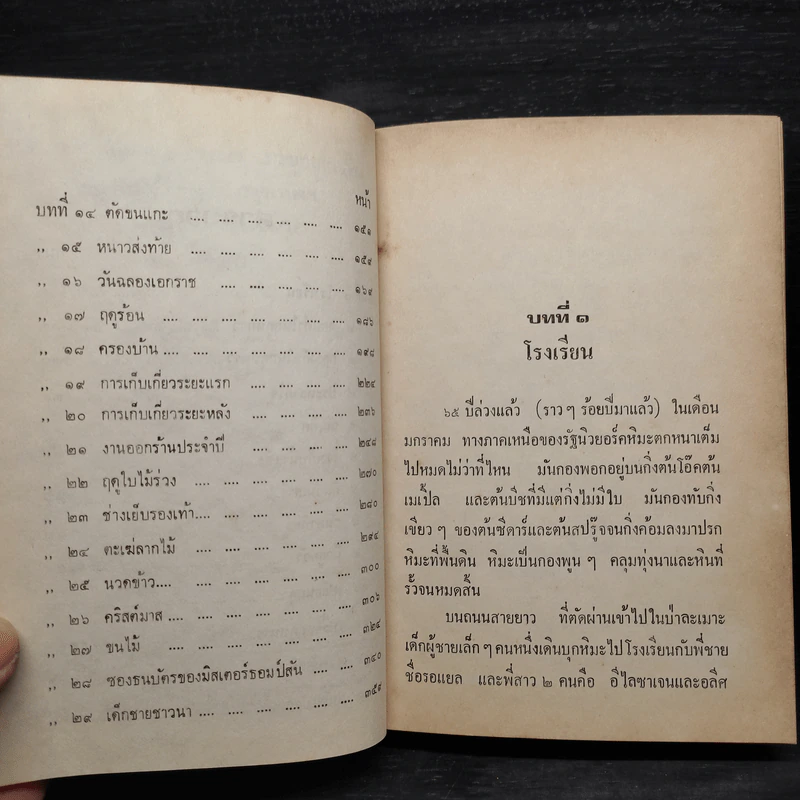 หน้า
บทที่ ๑๔ ตัดขนแกะ .... .... .... .... .... .... ๑๕๑
,, ๑๕ หนาวส่งท้าย .... .... .... .... .... .... ๑๕๙
,, ๑๖ วันฉลองเอกราช .... .... .... .... .... ๑๖๙
,, ๑๗ ฤดูร้อน .... .... .... .... .... .... .... ๑๘๖
,, ๑๘ ครองบ้าน .... .... .... .... .... .... .... ๑๙๘
,, ๑๙ การเก็บเกี่ยวระยะแรก .... .... .... .... ๒๒๔
,, ๒๐ การเก็บเกี่ยวระยะหลัง .... .... .... .... ๒๓๖
,, ๒๑ งานออกร้านประจำปี .... .... .... .... ๒๔๘
,, ๒๒ ฤดูใบไม้ร่วง .... .... .... .... .... ๒๗๐
,, ๒๓ ช่างเย็บรองเท้า.... .... .... .... .... ๒๘๐
,, ๒๔ ตะเฆ่ลากไม้ .... .... .... .... .... ๒๙๔
,, ๒๕ นวดข้าว.... .... .... .... .... .... ๓๐๐
,, ๒๖ คริสต์มาส .... .... .... .... .... .... ๓๐๖
,, ๒๗ ขนไม้ .... .... .... .... .... .... ๓๒๔
,, ๒๘ ซองธนบัตรของมิสเตอร์ธอมป์สัน .... .... .... ๓๔๐
,, ๒๙ เด็กชายชาวนา .... .... .... .... .... .... ๓๕๙
บทที่ ๑
โรงเรียน
๖๕ ปีล่วงแล้ว (ราว ๆ ร้อยปีมาแล้ว) ในเดือน
มกราคม ทางภาคเหนือของรัฐนิวยอร์คหิมะตกหนาเต็ม
ไปหมดไม่ว่าที่ไหน มันกองพอกอยู่บนกิ่งต้นโอ๊คต้น
เมเปิ้ล และต้นบีชที่มีแต่กิ่งไม่มีใบ มันกองทับกิ่ง
เขียว ๆ ของต้นซีดาร์และต้นสปรู๊จจนกิ่งค้อมลงมาปรก
หิมะที่พื้นดิน หิมะเป็นกองพูน ๆ คลุมทุ่งนาและหินที่
รั้วจนหมดสิ้น
บนถนนสายยาว ที่ตัดผ่านเข้าไปในป่าละเมาะ
เด็กผู้ชายเล็ก ๆ คนหนึ่งเดินบุกหิมะไปโรงเรียนกับพี่ชาย
ชื่อรอแยล และพี่สาว ๒ คนคือ อีไลซาเจนและอลิศ